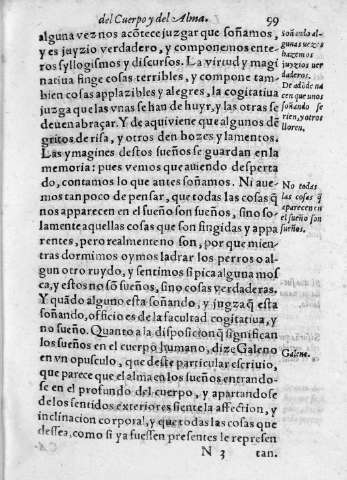 del Cuerpo y del Alma. 99
alguna vez nos acõtece juzgar que soñamos,
y es juyzio verdadero, y componemos ente-
ros syllogismos y discursos. La virtud y magi
natiua finge cosas terribles, y compone tam-
bien cosas applazibles y alegres, la cogitatiua
juzga que las vnas se han de huyr, y las otras se
deuen abraçar. Y de aqui viene que algunos dẽ
gritos de risa, y otros den bozes y lamentos.
Las ymagines destos sueños se guardan en la
memoria: pues vemos que auiendo desperta
do, contamos lo que antes soñamos. Ni aue-
mos tan poco de pensar, que todas las cosas q̃
nos apparecen en el sueño son sueños, sino so-
lamente aquellas cosas que son fingidas y appa
rentes, pero realmente no son, por que mien-
tras dormimos oymos ladrar los perros o al-
gun otro ruydo, y sentimos si pica alguna mos
ca, y estos no sõ sueños, sino cosas verdaderas.
Y quãdo alguno esta soñando, y juzga q̃ esta
soñando, officio es de la facultad cogitatiua, y
no sueño. Quanto a la disposiciõ q̃ significan
los sueños en el cuerpo humano, dize Galeno
en vn opusculo, que deste particular escriuio,
que parece que el alma en los sueños entrando-
se en el profundo del cuerpo, y apartandose
de los sentidos exteriores siente la affection, y
inclinacion corporal, y que todas las cosas que
dessea, como si ya fuessen presentes le represen
N 3 tan.
Soñando al-
gunas vezes
hazemos
juyzios ver
daderos.
De adõde na
cen que unos
soñando se
rien, y otros
lloren.
No todas
las cosas q̃
aparecen en
el sueño son
sueños.
Galeno.